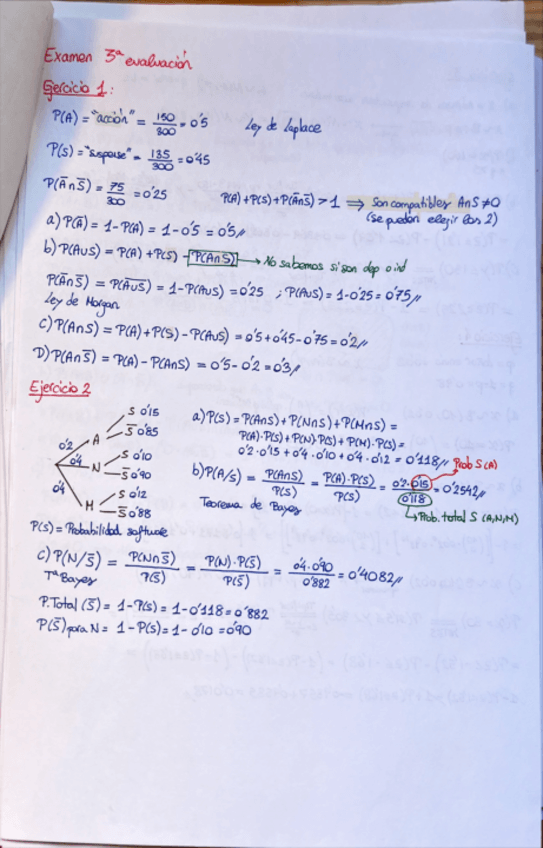 Examen 3ª evaluación
Ejercicio 1:
P(A) = "acción" = 150/300 = 0'5 Ley de Laplace
P(S) = "suspense" = 135/300 = 0'45
P(A̅∩S̅) = 75/300 = 0'25 P(A)+P(S)+P(A̅∩S̅) > 1 ⟹ Son compatibles A∩S ≠ 0
(se pueden elegir los 2)
a) P(A̅) = 1-P(A) = 1-0'5 = 0'5//
b) P(A∪S) = P(A)+P(S) - P(A∩S) → No sabemos si son dep o ind
P(A̅∩S̅) = P(A̅∪̅S̅) = 1-P(A∪S) = 0'25 ; P(A∪S) = 1-0'25 = 0'75//
Ley de Morgan
C) P(A∩S) = P(A)+P(S)-P(A∪S) = 0'5+0'45-0'75 = 0'2//
D) P(A∩S̅) = P(A)-P(A∩S) = 0'5-0'2 = 0'3//
Ejercicio 2
0'2 A S 0'15
S̅ 0'85
0'4 N S 0'10
S̅ 0'90
0'4 M S 0'12
S̅ 0'88
P(S) = Probabilidad software
a) P(S) = P(A∩S)+P(N∩S)+P(M∩S) =
P(A)·P(S)+P(N)·P(S)+P(M)·P(S) =
0'2·0'15+0'4·0'10+0'4·0'12 = 0'118// Prob S(A)
b) P(A/S) = P(A∩S)/P(S) = P(A)·P(S)/P(S) = 0'2·0'15/0'118 = 0'2542//
Teorema de Bayes → Prob. total S (A,N,M)
C) P(N/S̅) = P(N∩S̅)/P(S̅) = P(N)·P(S̅)/P(S̅) = 0'4·0'90/0'882 = 0'4082//
Tª Bayes
P.Total (S̅) = 1-P(S) = 1-0'118 = 0'882
P(S̅) para N = 1-P(S) = 1-0'10 = 0'90